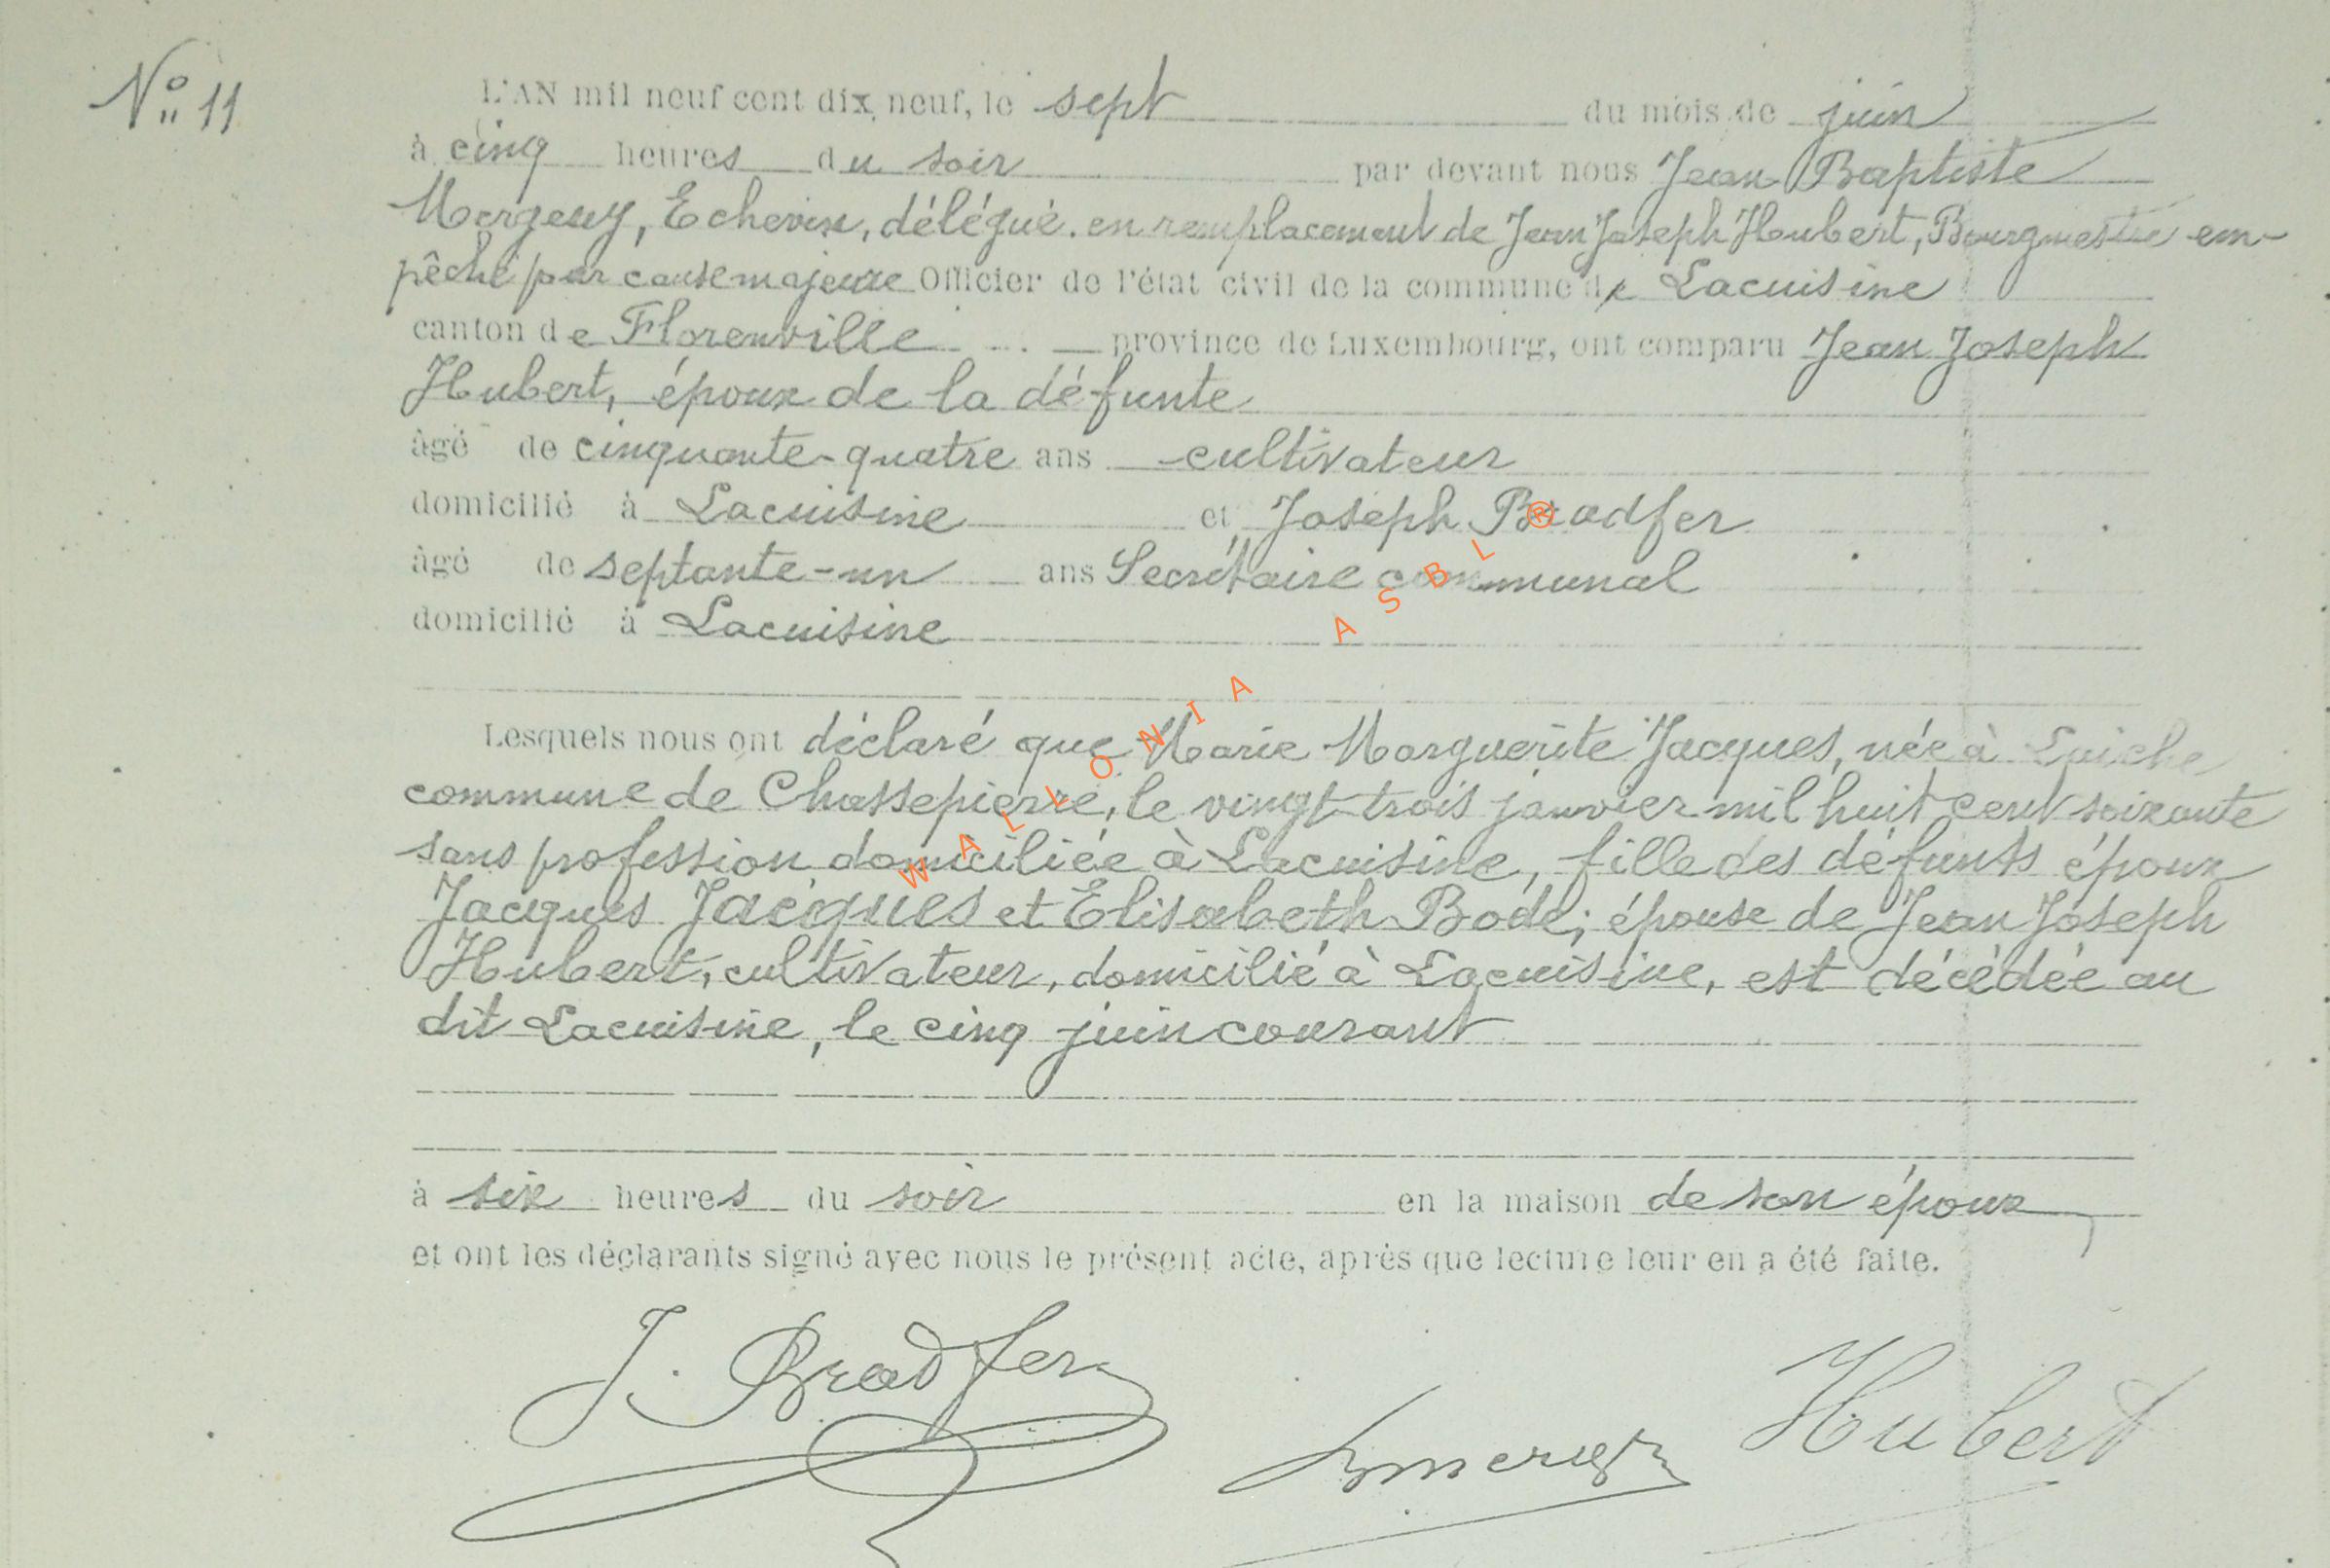 N° 11
L'AN mil neuf cent dix neuf, le sept du mois de juin
à cinq heures du soir par devant nous Jean Baptiste
Echevin, délégué en remplacement de Jean Joseph Hubert, Bourgmestre em-
pêché par cause majeure Officier de l'état civil de la commune de Lacuisine
canton de Florenville province de Luxembourg, ont comparu Jean Joseph
Hubert, époux de la défunte
âgé de cinquante-quatre ans cultivateur
domicilié à Lacuisine et Joseph Bradfer
âgé de septante-un ans Secrétaire communal
domicilié à Lacuisine
Lesquels nous ont déclaré que Marie Marguerite Jacques, née à Laiche
commune de Chassepierre, le vingt-trois janvier mil huit cent soixante
sans profession domiciliée à Lacuisine, fille des défunts époux
Jacques Jacques et Elisabeth Bode; épouse de Jean Joseph
Hubert, cultivateur, domicilié à Lacuisine, est décédée au
dit Lacuisine, le cinq juin courant
à six heures du soir en la maison de son époux
et ont les déclarants signé avec nous le présent acte, après que lecture leur en a été faite.
J. Bradfer
Hubert
WALLONIA ASBL ®